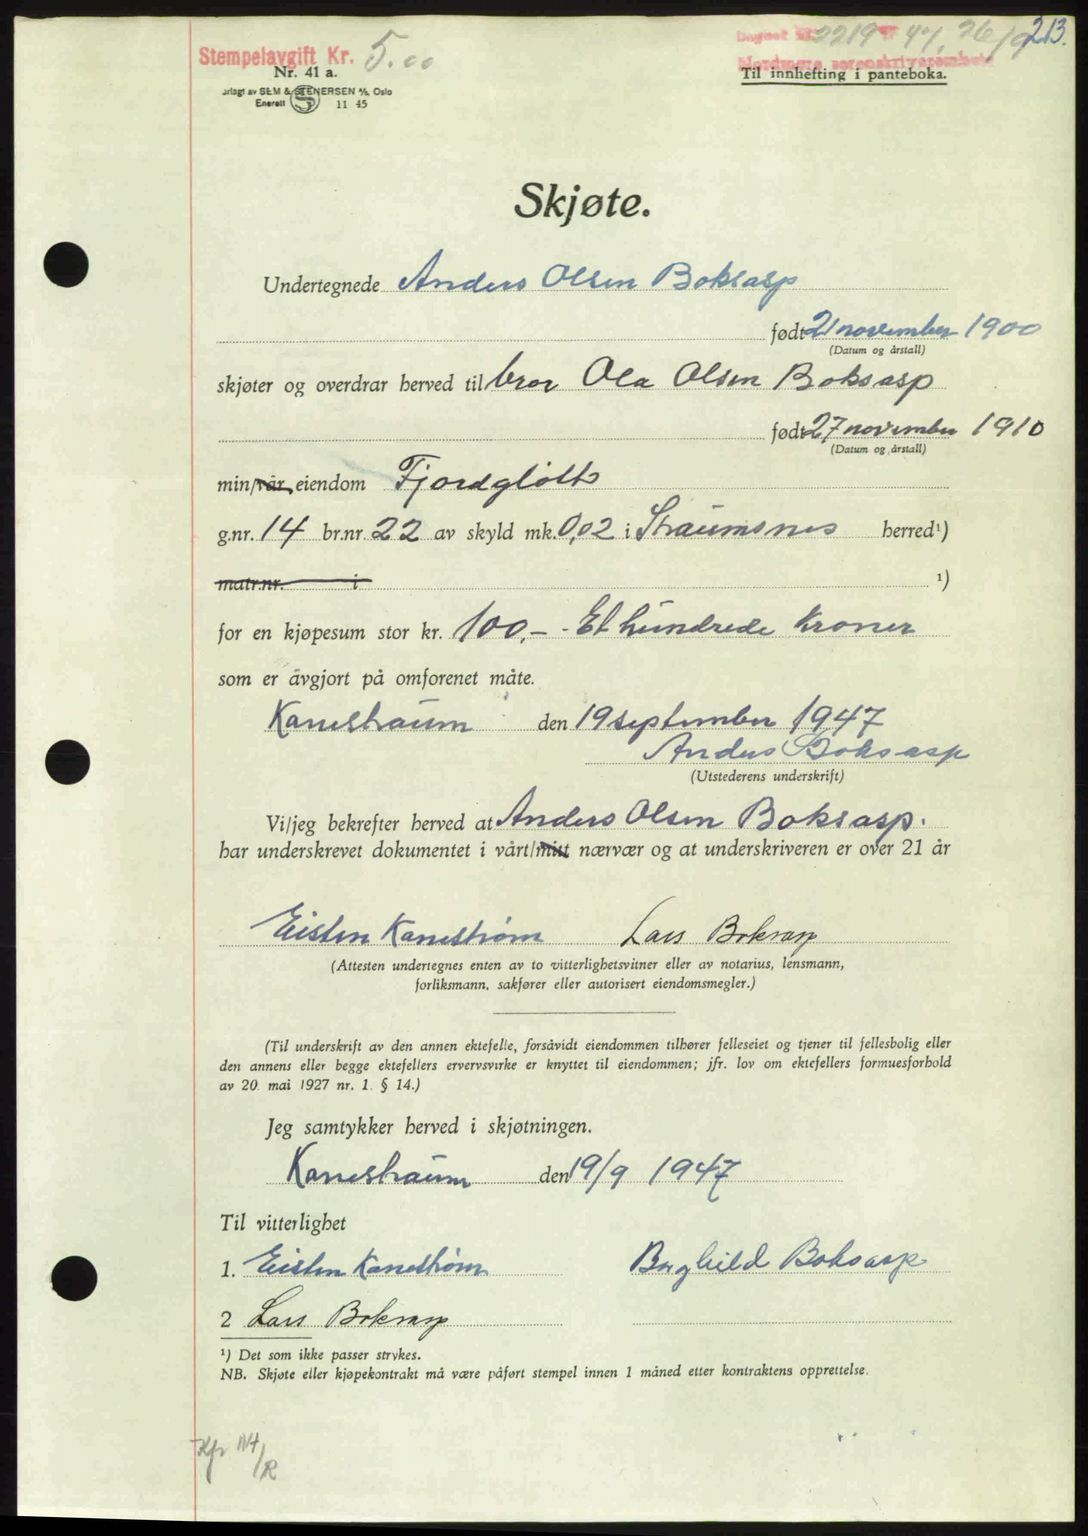 213.
Stempelavgift Kr. 5.00
Dagbok nr. 2219 47, 26/9
Nordmøre sorenskriverembete
Nr. 41 a.
Til innhefting i panteboka.
orlagt av SEM & STENERSEN A/s, Oslo
Enerett S 11 45
Skjøte.
Undertegnede Anders Olsen Boksasp
født 21 november 1900
(Datum og årstall)
skjøter og overdrar herved til bror Ola Olsen Boksasp
født 27 november 1910
(Datum og årstall)
min/vår eiendom Fjordgløtt
g.nr. 14 br.nr. 22 av skyld mk. 0,02 i Straumsnes herred¹)
matr.nr. i ¹)
for en kjøpesum stor kr. 100,- - Et hundrede Kroner
som er avgjort på omforenet måte.
Kanestraum den 19 september 1947
Anders Boksasp
(Utstederens underskrift)
Vi/jeg bekrefter herved at Anders Olsen Boksasp.
har underskrevet dokumentet i vårt/mitt nærvær og at underskriveren er over 21 år
Eisten Kanestrøm Lars Boksasp
(Attesten undertegnes enten av to vitterlighetsvitner eller av notarius, lensmann,
forliksmann, sakfører eller autorisert eiendomsmegler.)
(Til underskrift av den annen ektefelle, forsåvidt eiendommen tilhører felleseiet og tjener til fellesbolig eller
den annens eller begge ektefellers ervervsvirke er knyttet til eiendommen; jfr. lov om ektefellers formuesforhold
av 20. mai 1927 nr. 1. § 14.)
Jeg samtykker herved i skjøtningen.
Kanestraum den 19/9 1947
Til vitterlighet
1. Eisten Kanestrøm Borghild Boksasp
2 Lars Boksasp
¹) Det som ikke passer strykes.
NB. Skjøte eller kjøpekontrakt må være påført stempel innen 1 måned etter kontraktens opprettelse.